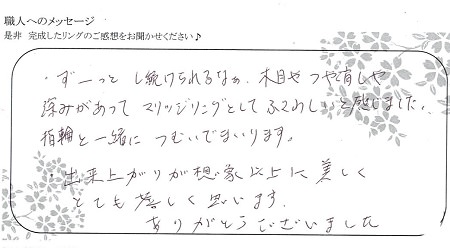 職人へのメッセージ
是非 完成したリングのご感想をお聞かせください♪
・ずーっと し続けられるなぁ、木目や つや消しや
深みがあって マリッジリングとして ふさわしいと感じました。
指輪と一緒に つむいでまいります。
・出来上がりが想像以上に美しく
とても嬉しく思います。
ありがとうございました